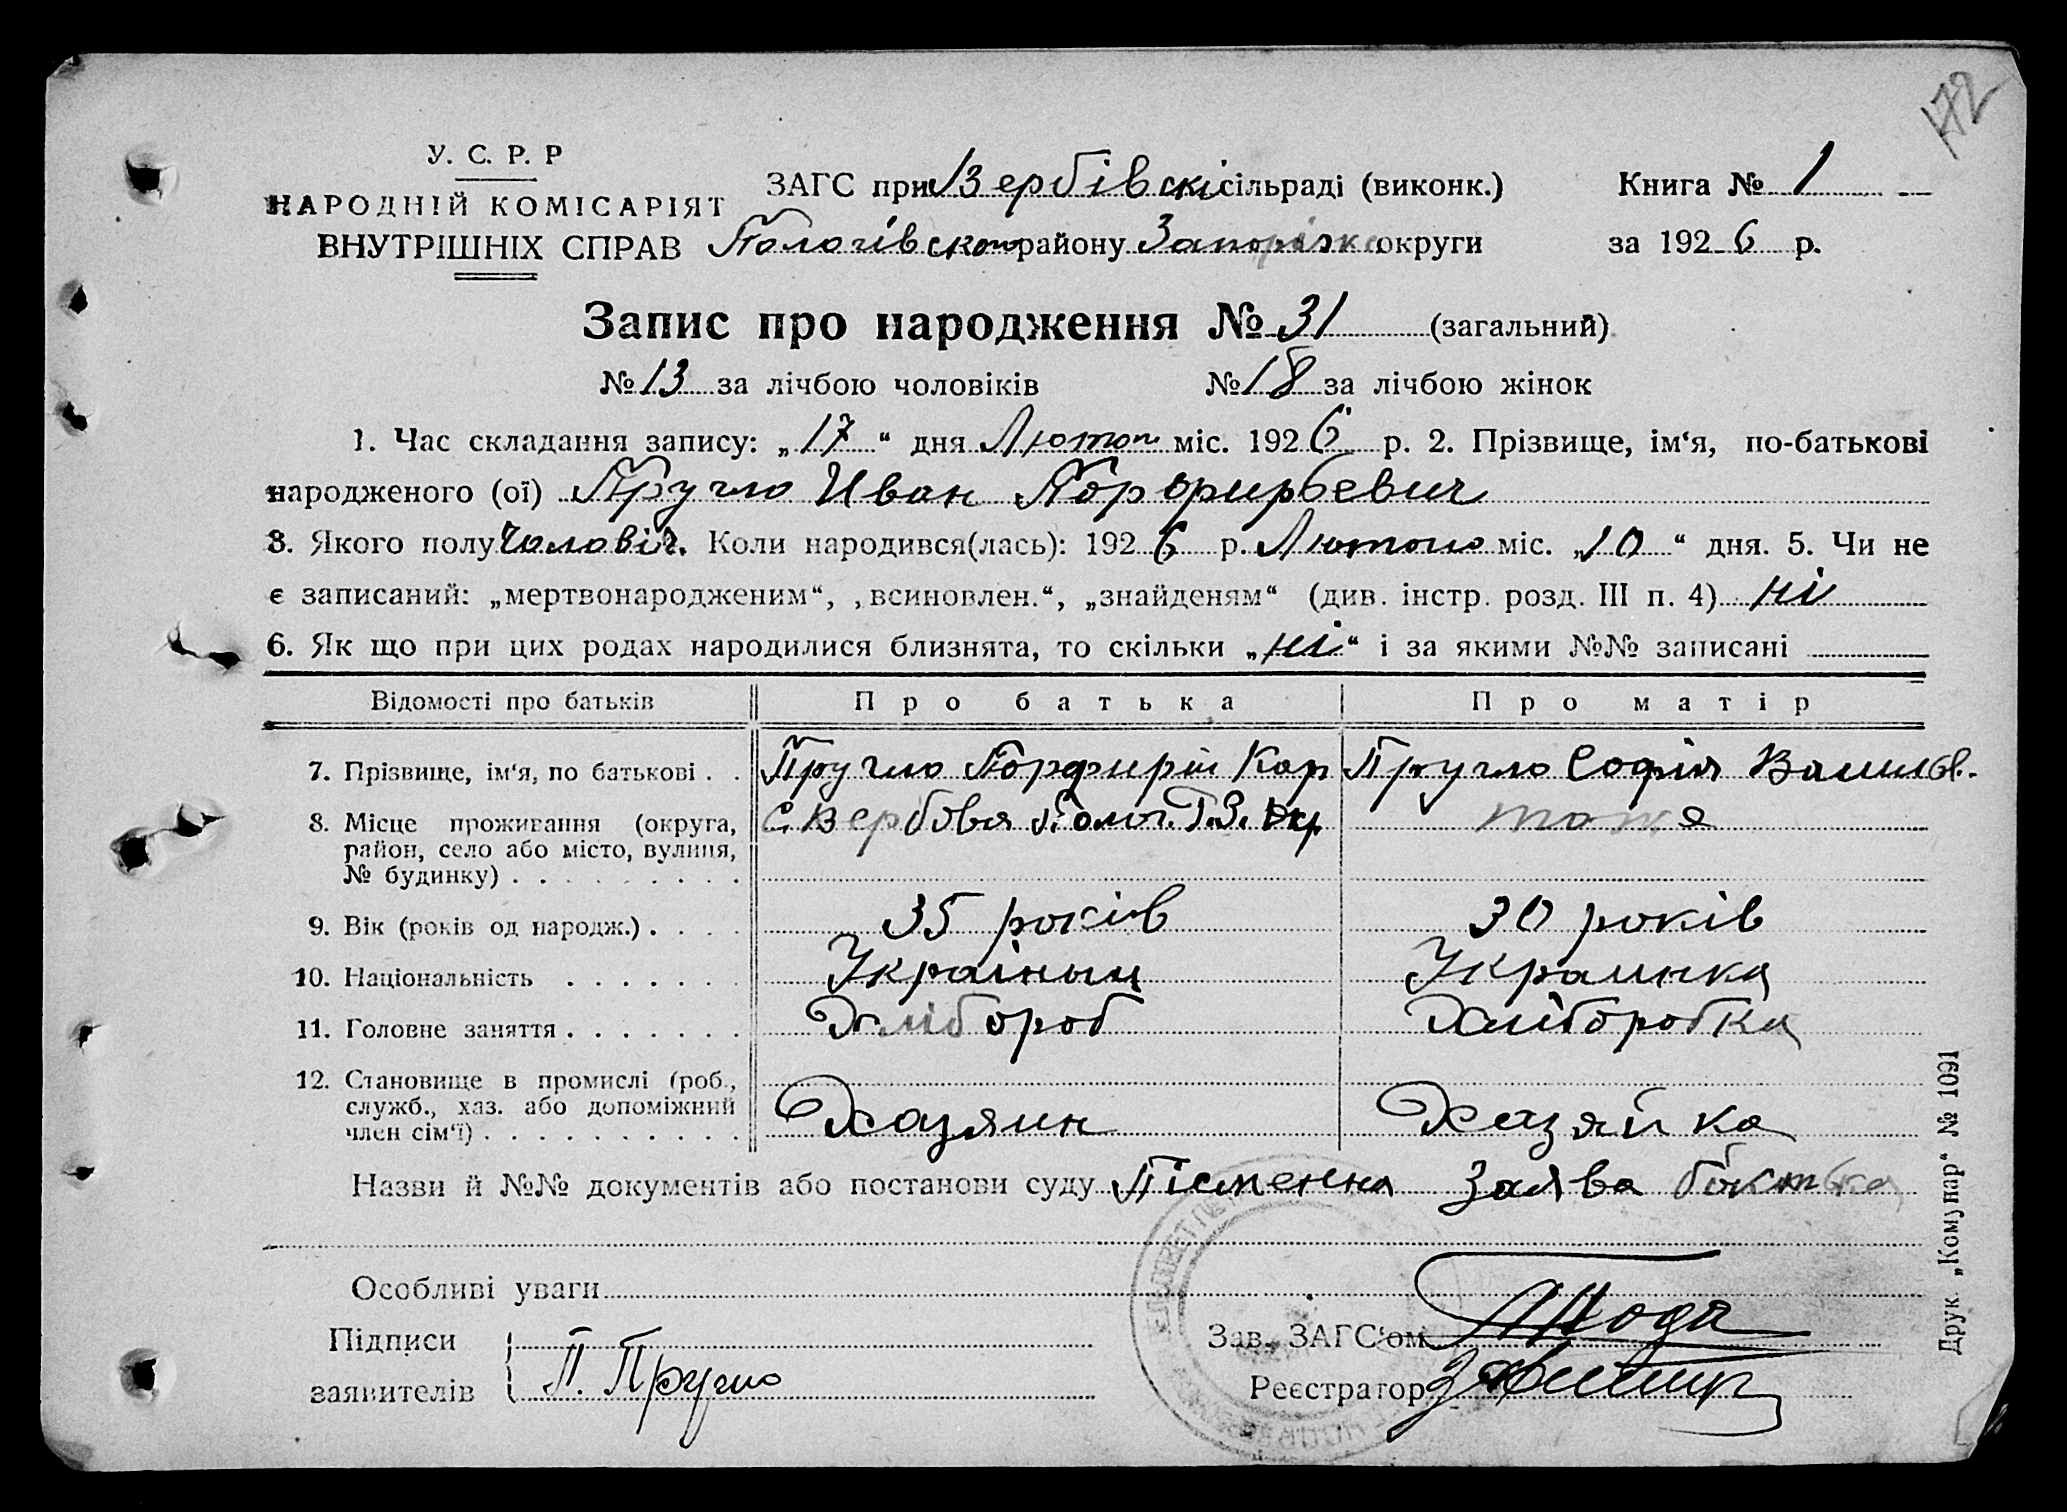 172
У. С. Р. Р
НАРОДНІЙ КОМІСАРІЯТ
ВНУТРІШНІХ СПРАВ
ЗАГС при Вербівскі сільраді (виконк.)
Пологівского району Запоріжс округи
Книга № 1
за 1926 р.
Запис про народження № 31 (загальний)
№ 13 за лічбою чоловіків № 18 за лічбою жінок
1. Час складання запису: „17“ дня Лютого міс. 1926 р. 2. Прізвище, ім‘я, по-батькові
народженого (ої) Пругло Иван Порфирьевич
3. Якого полу Чоловіч. Коли народився(лась): 1926 р. Лютого міс. „10“ дня. 5. Чи не
є записаний: „мертвонародженим“, „всиновлен.“, „знайденям“ (див. інстр. розд. III п. 4) ні
6. Як що при цих родах народилися близнята, то скільки „ні“ і за якими №№ записані
Відомості про батьків Про батька Про матір
7. Прізвище, ім‘я, по батькові . . Пругло Порфирій Кар Пругло Софія Васильев.
8. Місце проживання (округа, район, село або місто, вулиця, № будинку) с. Вербовя Полог. Р. З. Окр. тоже
9. Вік (років од народж.) 35 років 30 років
10. Національність Україныц Украинка
11. Головне заняття Хлібороб Хліборобка
12. Становище в промислі (роб., служб., хаз. або допоміжний член сім‘ї) Хазяин Хазяйка
Назви й №№ документів або постанови суду Пісменна Заява батька
Особливі уваги
Підписи
заявителів П. Пругло
Зав. ЗАГС‘ом
Реєстратор
Друк. „Комунар“ № 1091